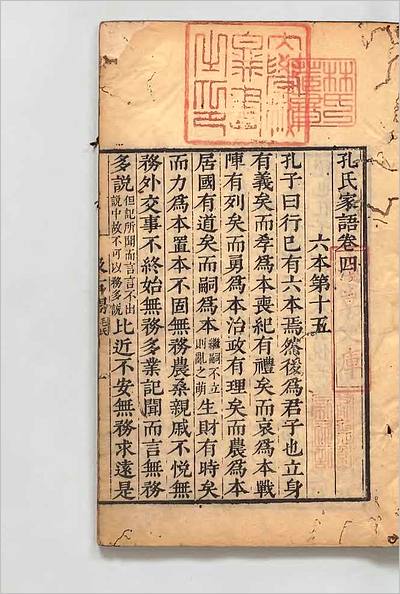 孔氏家語卷四
六本第十五
孔子曰行己有六本焉然後爲君子也立身
有義矣而孝爲本喪紀有禮矣而哀爲本戰
陣有列矣而勇爲本治政有理矣而農爲本
居國有道矣而嗣爲本繼嗣不立則亂之萌生財有時矣
而力爲本置本不固無務農桑親戚不悅無
務外交事不終始無務多業記聞而言無務
多說但記所聞而言言不出說中故不可以務多說比近不安無務求遠是